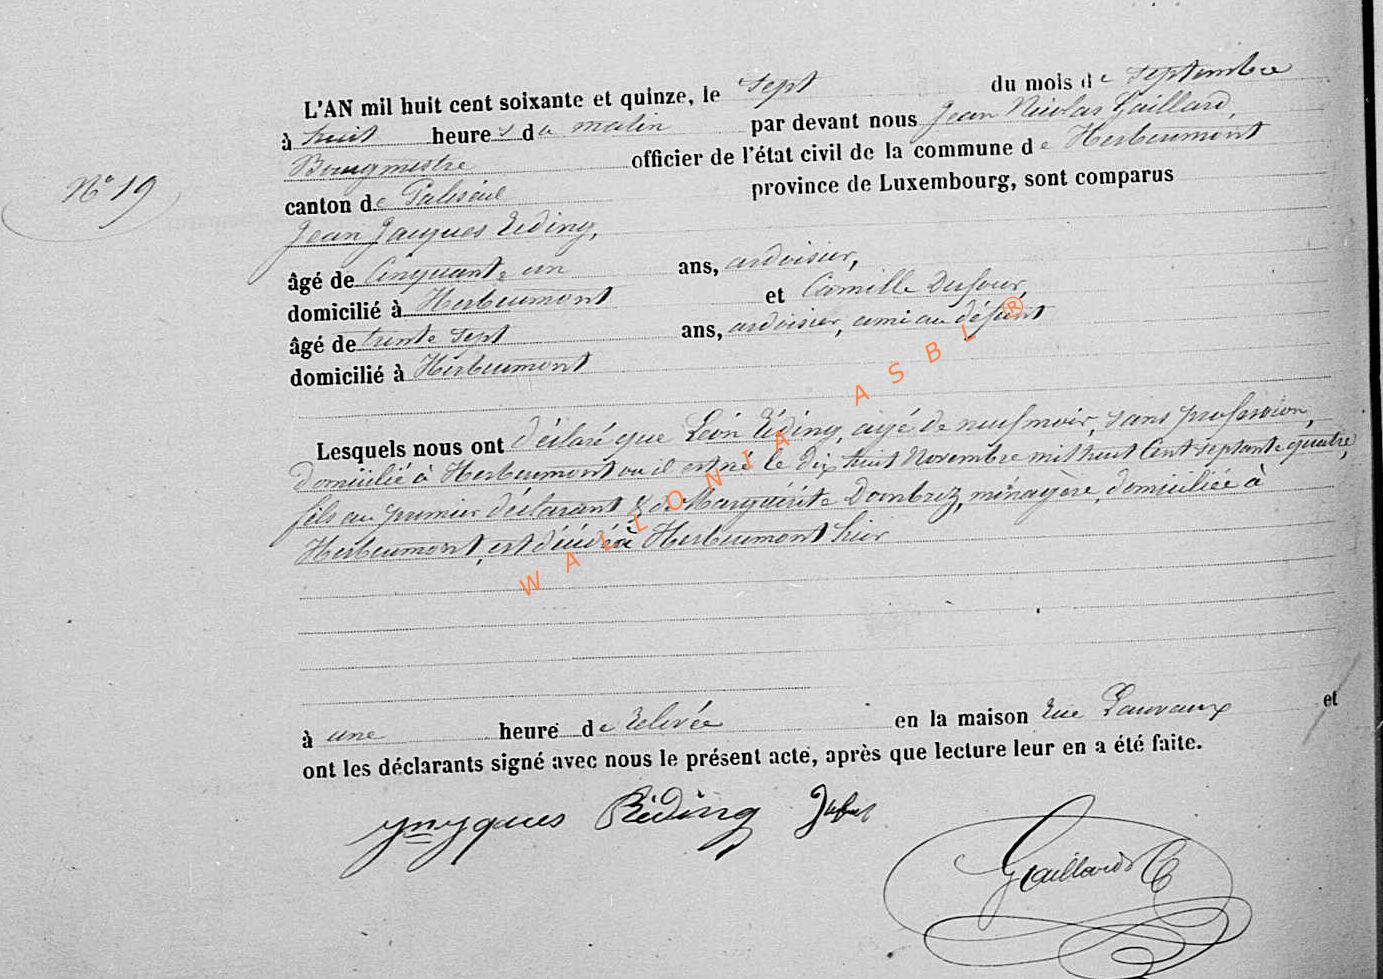 L'AN mil huit cent soixante et quinze, le sept du mois de septembre
à huit heures du matin par devant nous Jean Nicolas Gaillard,
Bourgmestre officier de l'état civil de la commune de Herbeumont
N° 19
canton de Paliseul province de Luxembourg, sont comparus
Jean Jacques Réding,
âgé de Cinquante un ans, ardoisier,
domicilié à Herbeumont et Camille Dufour,
âgé de trente sept ans, ardoisier, ami au défunt
domicilié à Herbeumont
Lesquels nous ont déclaré que Léon Réding, âgé de neuf mois, sans profession,
domicilié à Herbeumont où il est né le dix huit Novembre mil huit Cent septante quatre,
fils au premier déclarant & de Marguerite Dombrez, ménagère, domiciliée à
Herbeumont, est décédé à Herbeumont hier
à une heure de relevée en la maison Rue Lauvaux et
ont les déclarants signé avec nous le présent acte, après que lecture leur en a été faite.
Réding
Gaillard
WALLONIA ASBL ®